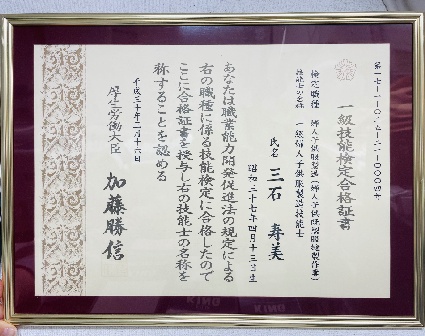 一級技能検定合格証書
検定職種 婦人子供服製造(婦人子供注文服製作作業)
技能士の名称 一級婦人子供服製造技能士
氏名 三石 寿美
昭和三十七年四月十三日生
あなたは職業能力開発促進法の規定による
右の職種に係る技能検定に合格したので
ここに合格証書を授与し右の技能士の名称を
称することを認める
平成三十年三月十六日
厚生労働大臣 加藤勝信